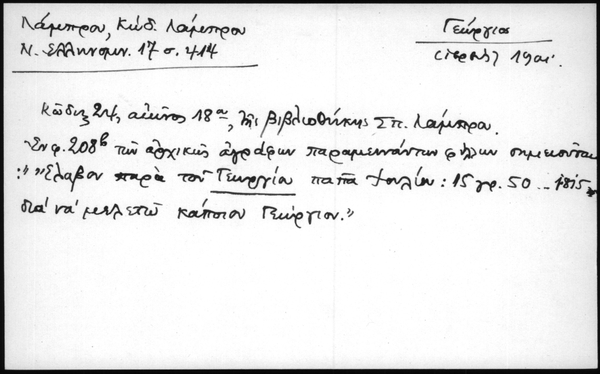 Λάμπρου, Κώδ. Λάμπρου
Ν. Ελληνομν. 17 σ. 414
Γεώργιος
(ιερεύς) 19ου.
Κώδιξ 24, αιώνος 18ου, της βιβλιοθήκης Σπ. Λάμπρου.
Εν φ. 208β των αρχικώς αγράφων παραμεινάντων φύλλων σημειούται
: "Έλαβον παρά του Γεωργίου παπά Ιουλίου: 15 γρ. 50 - 1815
διά να μελετώ κάποιον Γεώργιον."